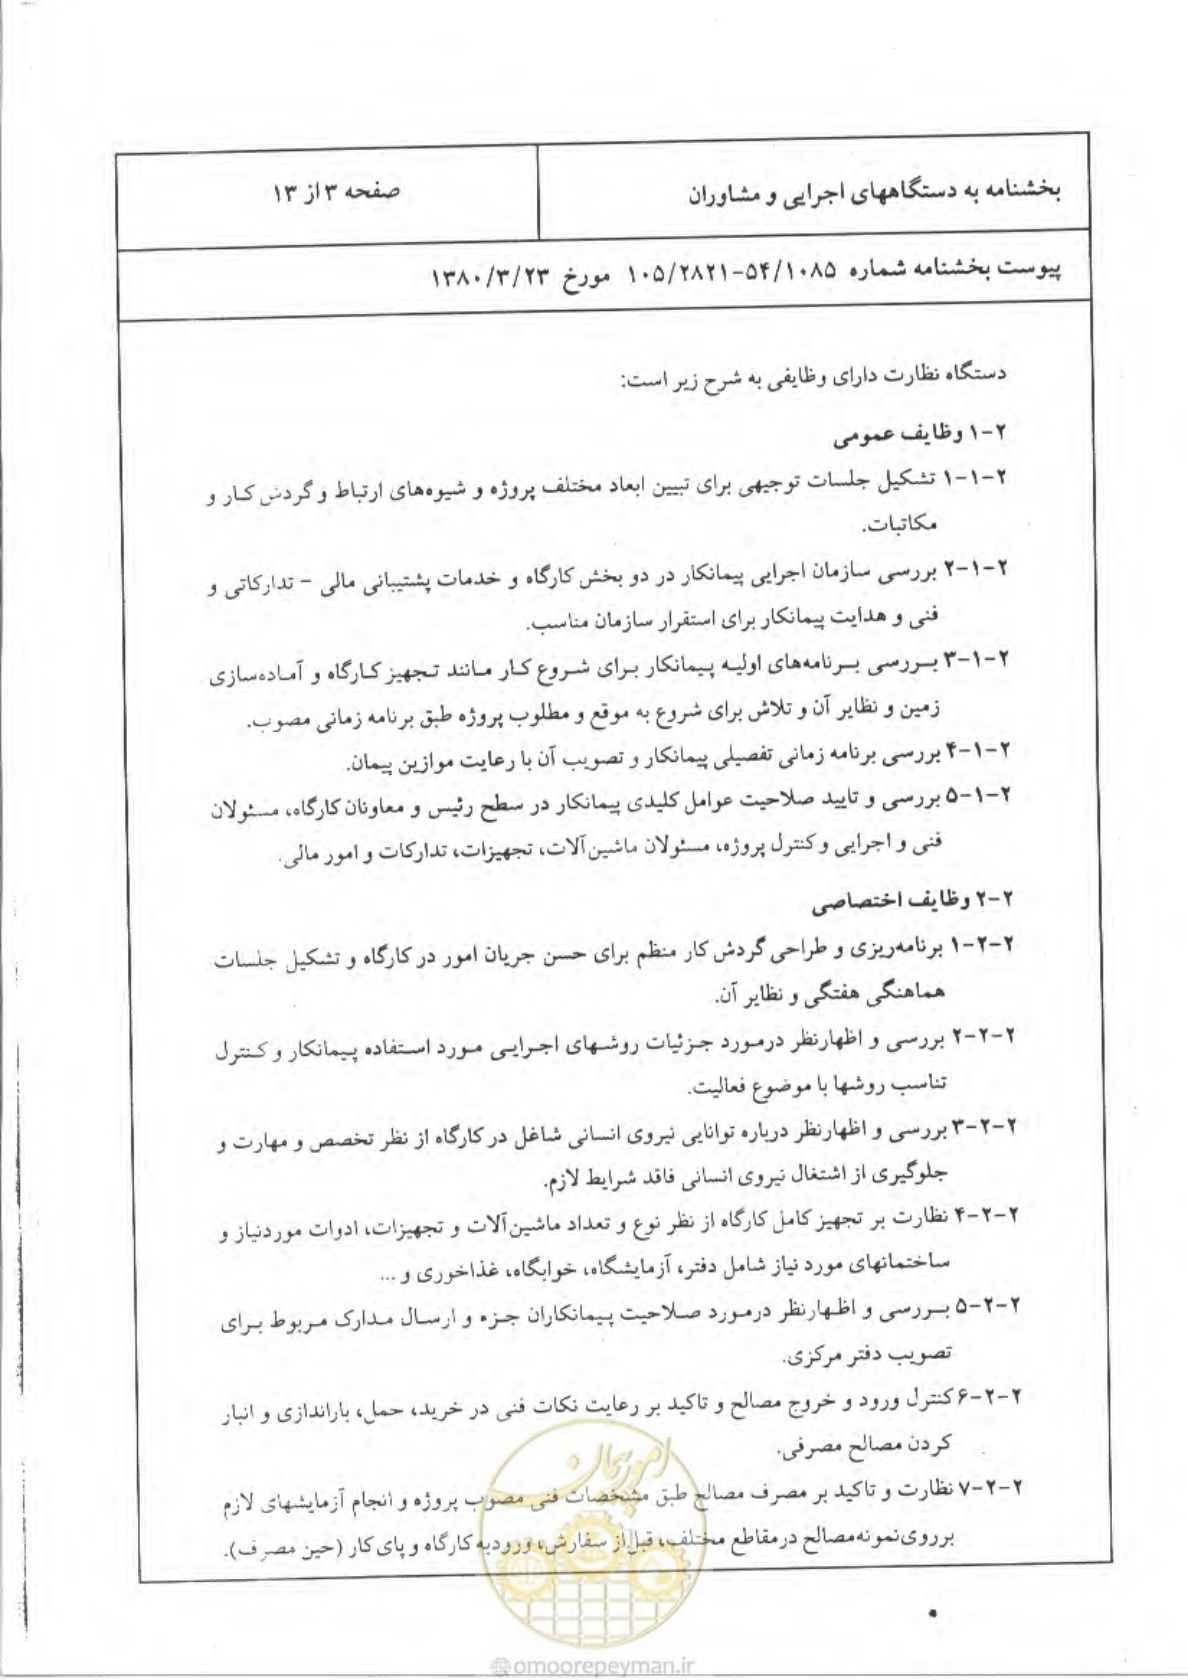 بخشنامه به دستگاههای اجرایی و مشاوران
صفحه ۳ از ۱۳
پیوست بخشنامه شماره ۱۰۵/۲۸۲۱-۵۴/۱۰۸۵ مورخ ۱۳۸۰/۳/۲۳
دستگاه نظارت دارای وظایفی به شرح زیر است:
۱-۲ وظایف عمومی
۱-۱-۲ تشکیل جلسات توجیهی برای تبیین ابعاد مختلف پروژه و شیوه‌های ارتباط و گردش کار و
مکاتبات.
۲-۱-۲ بررسی سازمان اجرایی پیمانکار در دو بخش کارگاه و خدمات پشتیبانی مالی - تدارکاتی و
فنی و هدایت پیمانکار برای استقرار سازمان مناسب.
۳-۱-۲ بررسی برنامه‌های اولیه پیمانکار برای شروع کار مانند تجهیز کارگاه و آماده‌سازی
زمین و نظایر آن و تلاش برای شروع به موقع و مطلوب پروژه طبق برنامه زمانی مصوب.
۴-۱-۲ بررسی برنامه زمانی تفصیلی پیمانکار و تصویب آن با رعایت موازین پیمان.
۵-۱-۲ بررسی و تایید صلاحیت عوامل کلیدی پیمانکار در سطح رئیس و معاونان کارگاه، مسئولان
فنی و اجرایی و کنترل پروژه، مسئولان ماشین‌آلات، تجهیزات، تدارکات و امور مالی.
۲-۲ وظایف اختصاصی
۱-۲-۲ برنامه‌ریزی و طراحی گردش کار منظم برای حسن جریان امور در کارگاه و تشکیل جلسات
هماهنگی هفتگی و نظایر آن.
۲-۲-۲ بررسی و اظهارنظر درمورد جزئیات روشهای اجرایی مورد استفاده پیمانکار و کنترل
تناسب روشها با موضوع فعالیت.
۳-۲-۲ بررسی و اظهارنظر درباره توانایی نیروی انسانی شاغل در کارگاه از نظر تخصص و مهارت و
جلوگیری از اشتغال نیروی انسانی فاقد شرایط لازم.
۴-۲-۲ نظارت بر تجهیز کامل کارگاه از نظر نوع و تعداد ماشین‌آلات و تجهیزات، ادوات موردنیاز و
ساختمانهای مورد نیاز شامل دفتر، آزمایشگاه، خوابگاه، غذاخوری و ...
۵-۲-۲ بررسی و اظهارنظر درمورد صلاحیت پیمانکاران جزء و ارسال مدارک مربوط برای
تصویب دفتر مرکزی.
۶-۲-۲ کنترل ورود و خروج مصالح و تاکید بر رعایت نکات فنی در خرید، حمل، باراندازی و انبار
کردن مصالح مصرفی.
۷-۲-۲ نظارت و تاکید بر مصرف مصالح طبق مشخصات فنی مصوب پروژه و انجام آزمایشهای لازم
برروی نمونه مصالح در مقاطع مختلف، قبل از سفارش، ورود به کارگاه و پای کار (حین مصرف).
امور پیمان
@omoorepeyman.ir